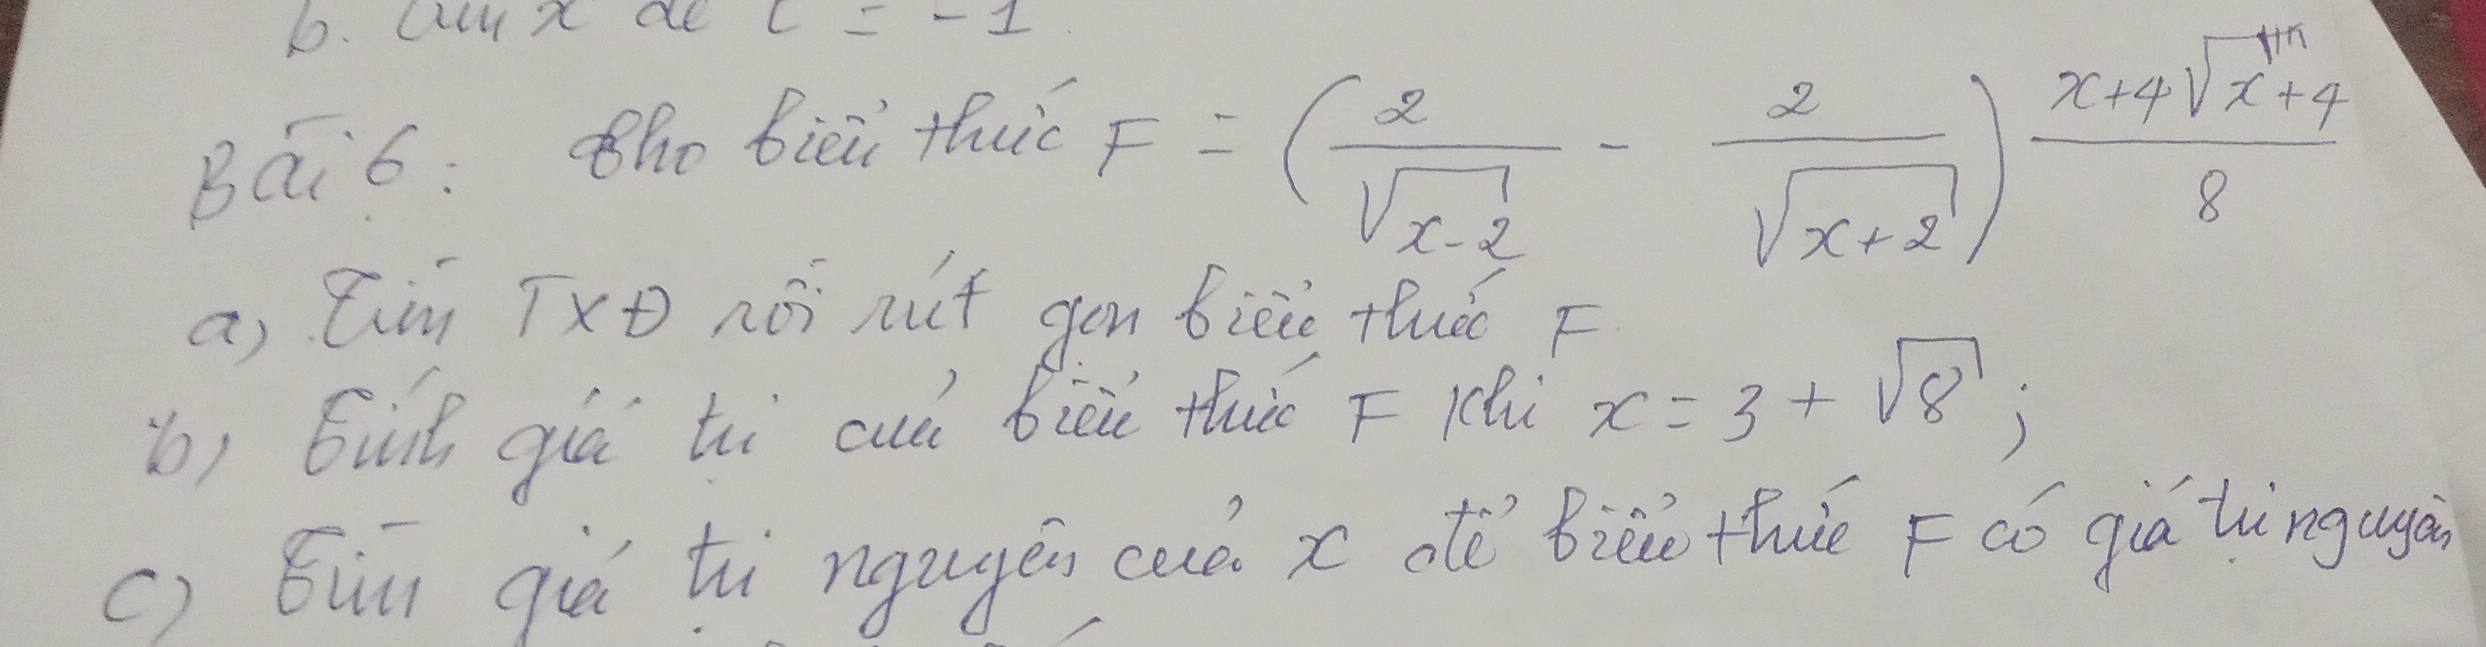 b. tìm x để = -1
Bài 6: Cho biểu thức F = (2/√x-2 - 2/√x+2) x+4√x+4/8
a, Tìm TXĐ rồi rút gọn biểu thức F
b, Tính giá trị của biểu thức F khi x = 3 + √8;
c) Tìm giá trị nguyên của x để biểu thức F có giá trị nguyên